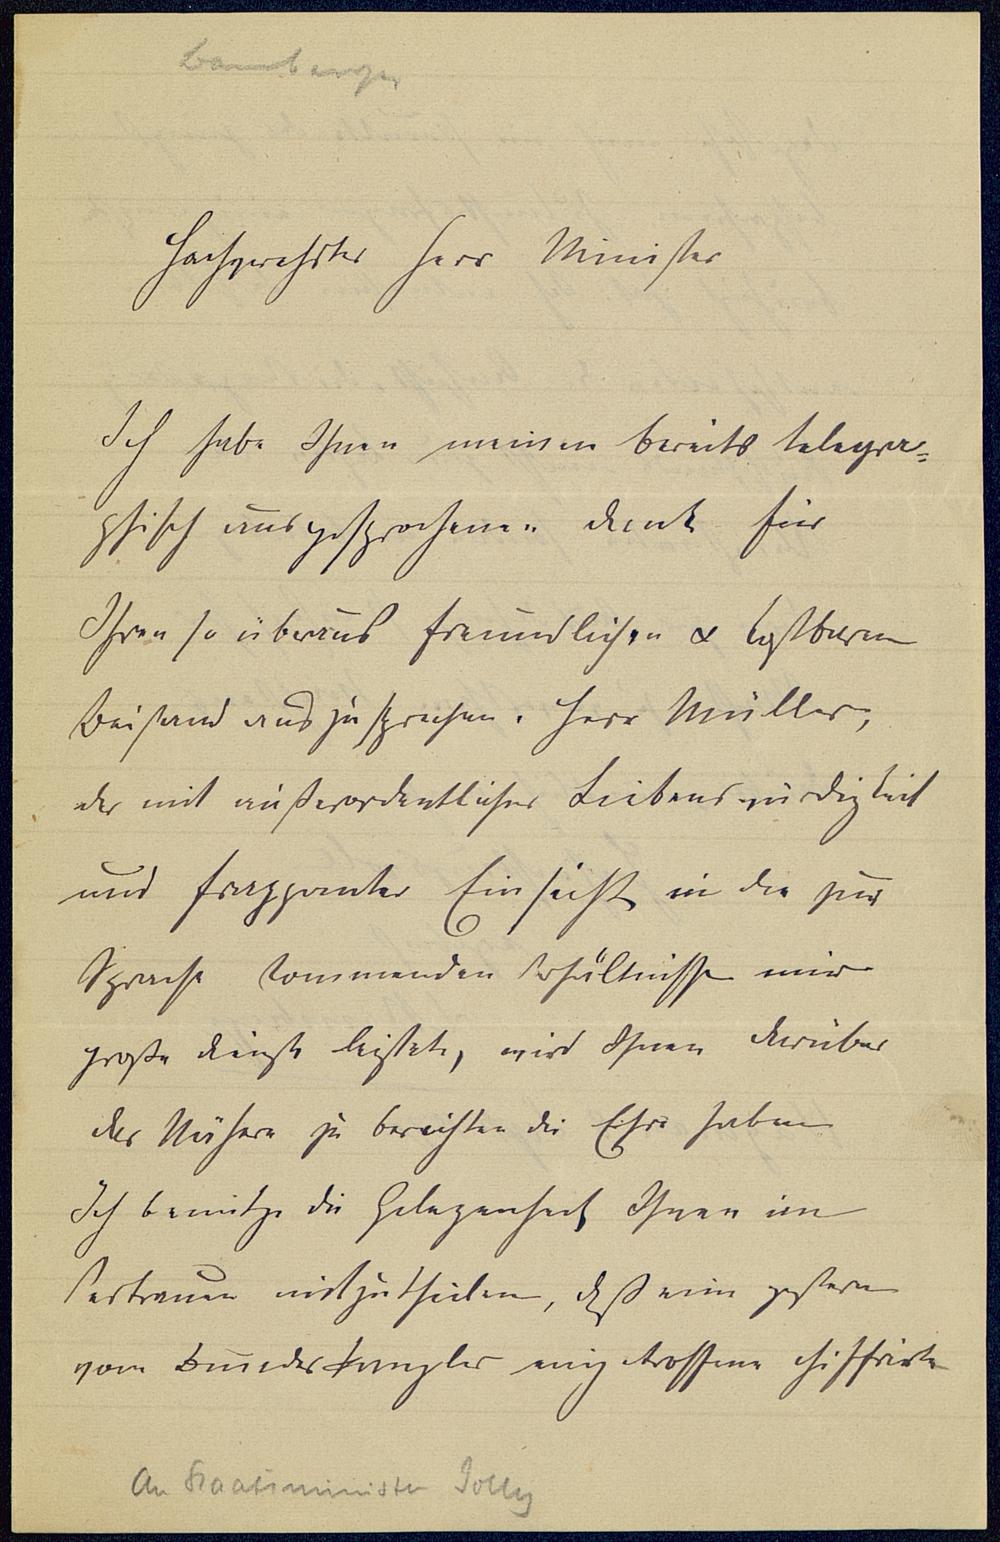 Bamberger
Hochgeehrter Herr Minister
Ich habe Ihnen meinen bereits telegra-
phisch ausgesprochenen Dank für
Ihren so überaus freundlichen & kostbaren
Beistand auszusprechen. Herr Müller,
der mit außerordentlicher Liebenswürdigkeit
und frappanter Einsicht in die zur
Sprache kommenden Verhältnisse mir
große Dienste leistete, wird Ihnen darüber
des Nähern zu berichten die Ehre haben
Ich benutze die Gelegenheit Ihnen im
Vertrauen mitzutheilen, daß eine gestern
vom Bundeskanzler eingetroffene chiffrirte
An Staatsminister Jolly